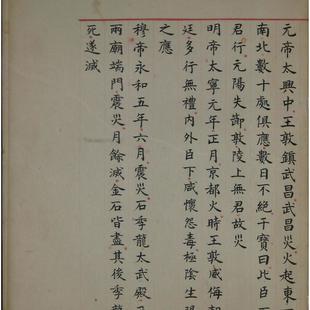 元帝太興中王敦鎮武昌武昌災火起東
南北數十處俱應數日不絕干寶曰此臣
君行元陽失御敦陵上無君故災
明帝太寧元年正月京都火時王敦威侮
廷多行無禮內外臣下咸懷怨毒極陰生
之應
穆帝永和五年六月震災石季龍太武殿
兩廟端門震災月餘滅金石皆盡其後季龍
死遂滅